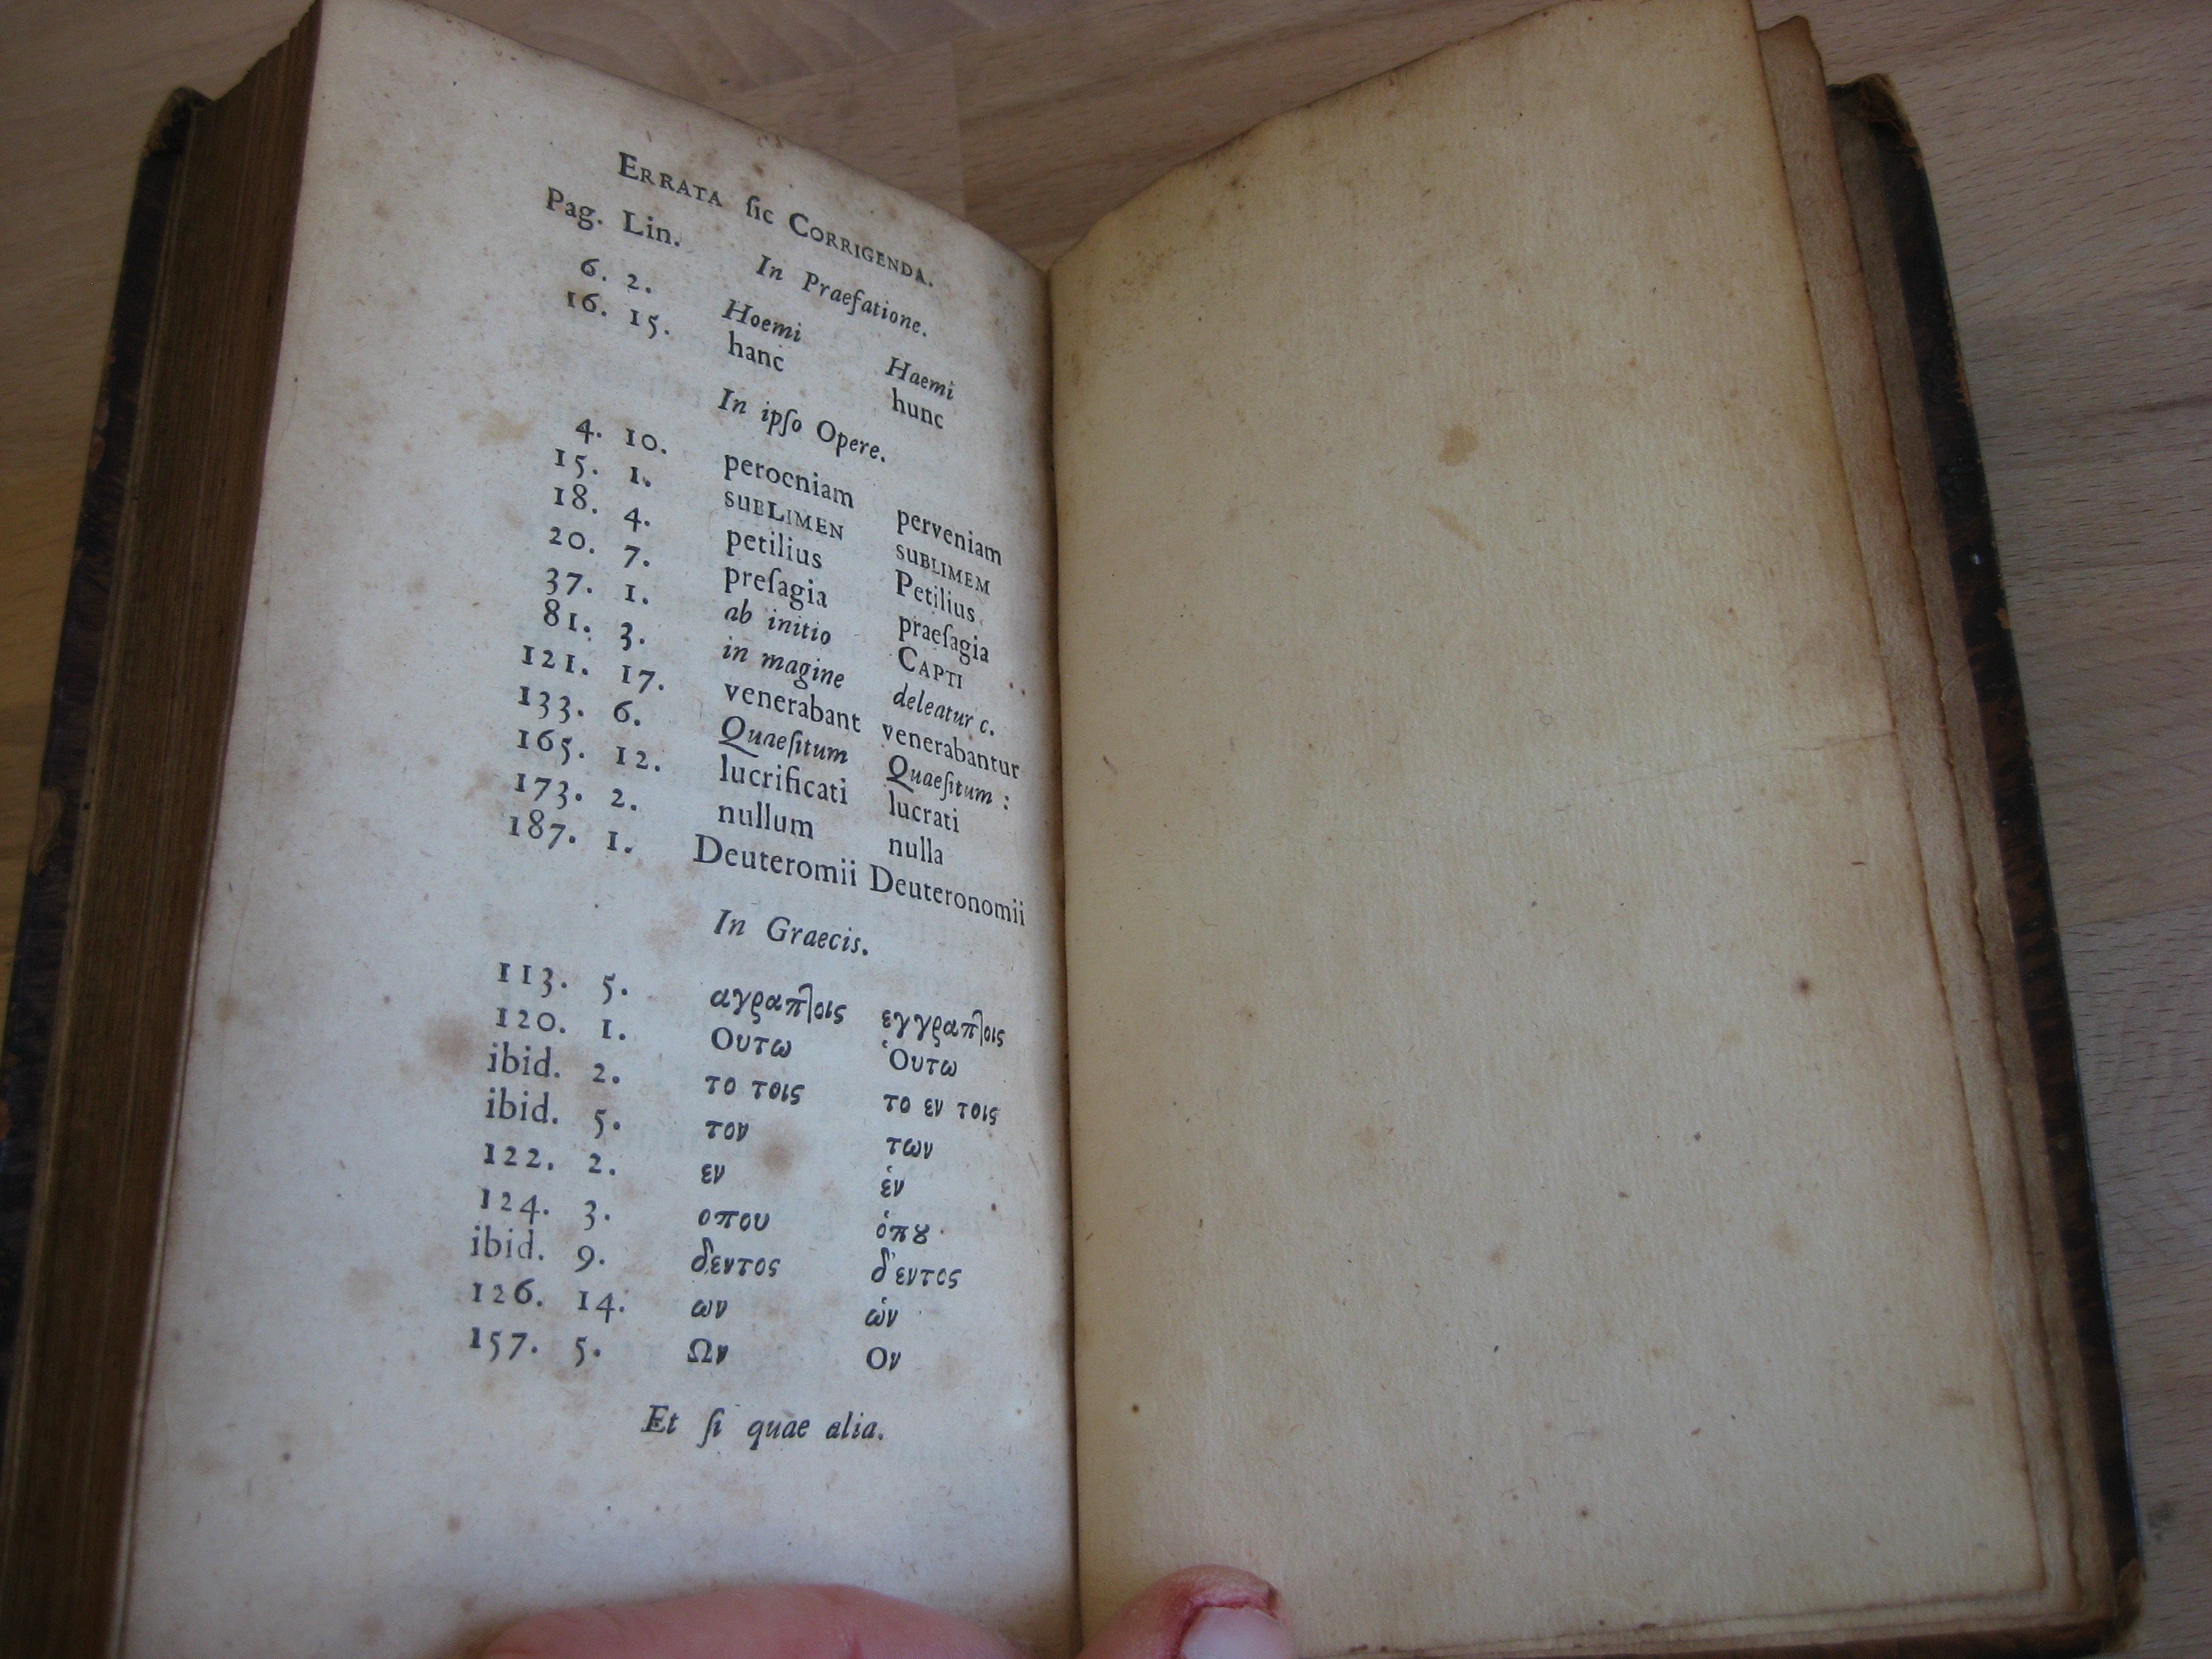 ERRATA ſic CORRIGENDA.
Pag. Lin.
In Praefatione.
6. 2. Hoemi Haemi
16. 15. hanc hunc
In ipſo Opere.
4. 10. perocniam perveniam
15. 1. SUBLIMEN SUBLIMEM
18. 4. petilius Petilius
20. 7. preſagia praeſagia
37. 1. ab initio CAPTI
81. 3. in magine deleatur c.
121. 17. venerabant venerabantur
133. 6. Quaeſitum Quaeſitum :
165. 12. lucrificati lucrati
173. 2. nullum nulla
187. 1. Deuteromii Deuteronomii
In Graecis.
113. 5. αγραπτοις εγγραπτοις
120. 1. Ουτω Ὁυτω
ibid. 2. το τοις το εν τοις
ibid. 5. τον των
122. 2. εν ἑν
124. 3. οπου ὁπȣ
ibid. 9. δεντος δ'εντος
126. 14. ων ὡν
157. 5. Ων Ον
Et ſi quae alia.